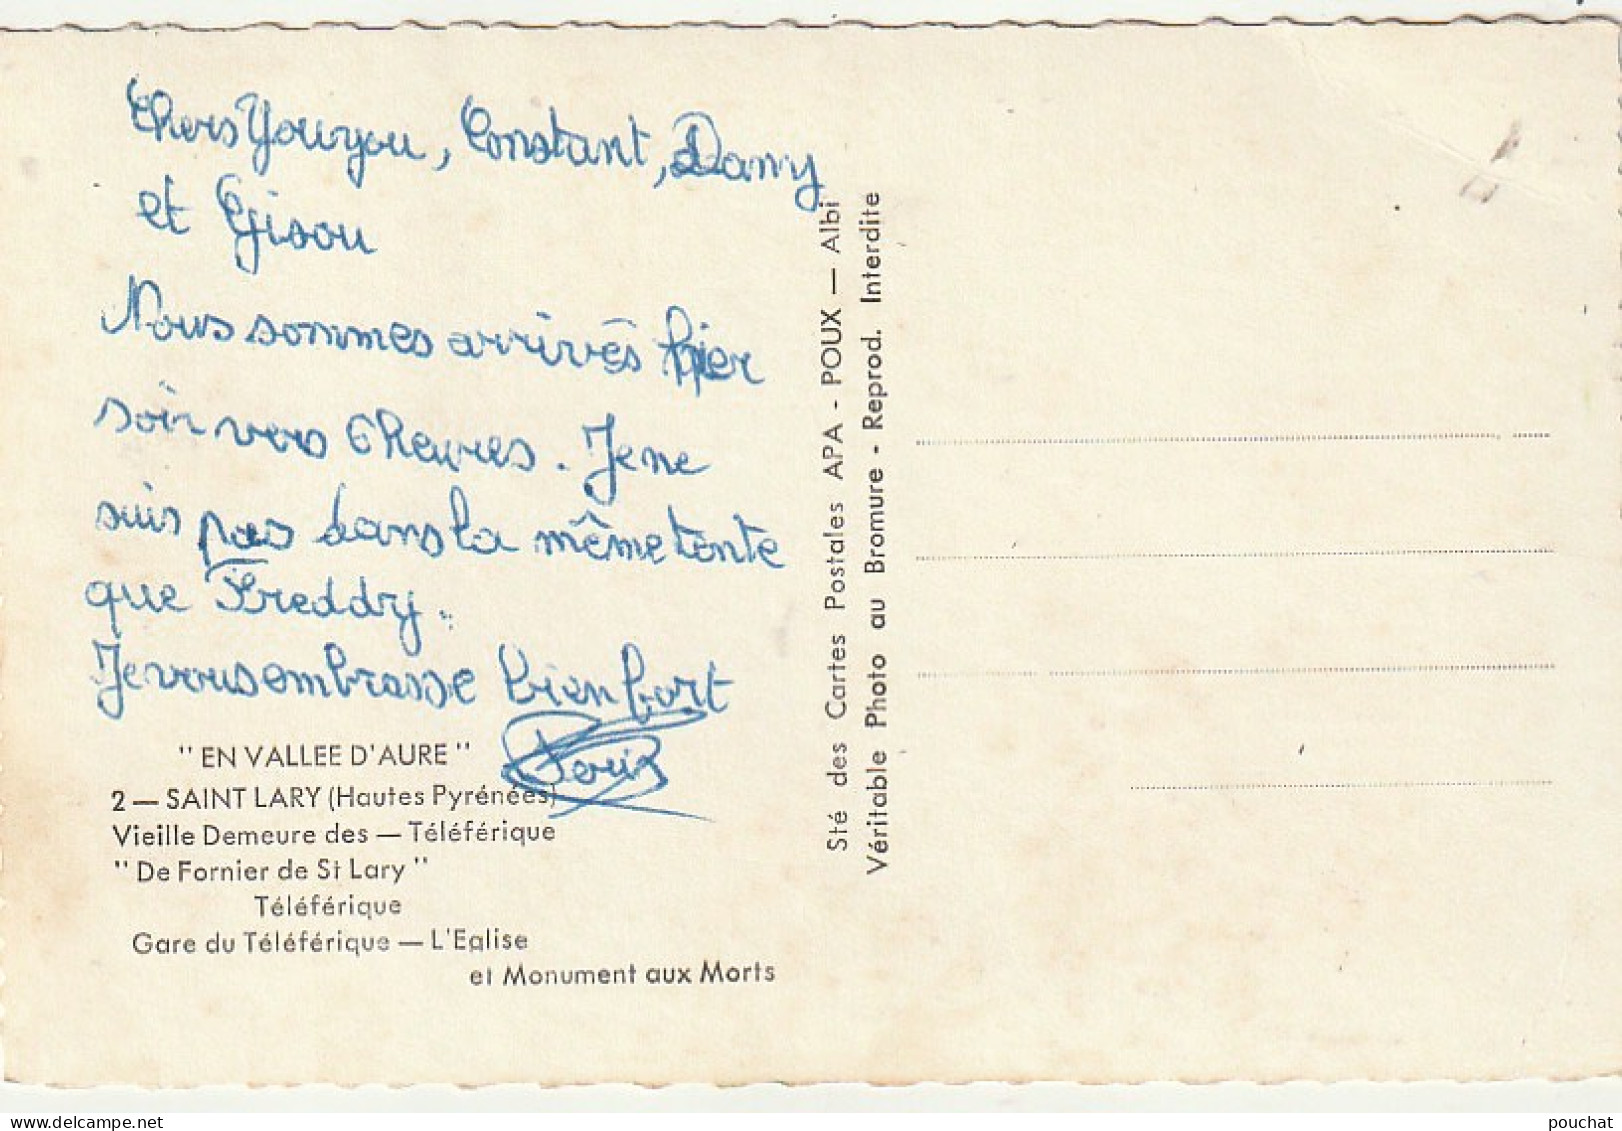 Chers Youyou, Constant, Dany
et Gisou
Nous sommes arrivés hier
soir vers 6 heures. Je ne
suis pas dans la même tente
que Freddy.
Je vous embrasse bien fort
" EN VALLEE D'AURE "
2 — SAINT LARY (Hautes Pyrénées)
Vieille Demeure des — Téléférique
" De Fornier de St Lary "
Téléférique
Gare du Téléférique — L'Eglise
et Monument aux Morts
Sté des Cartes Postales APA - POUX — Albi
Véritable Photo au Bromure - Reprod. Interdite
www.delcampe.net
pouchat